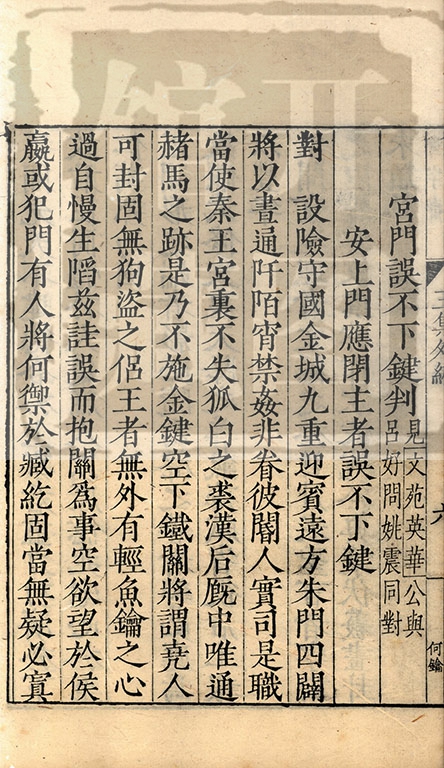 宮門誤不下鍵判見文苑英華公與
呂好問姚震同對
安上門應閉主者誤不下鍵
對　設險守國金城九重迎賓遠方朱門四闢
將以晝通阡陌宵禁姦非眷彼閽人實司是職
當使秦王宮裏不失狐白之裘漢后廐中唯通
赭馬之跡是乃不施金鍵空下鐵關將謂堯人
可封固無狗盜之侣王者無外有輕魚鑰之心
過自慢生陷茲詿誤而抱關爲事空欲望於侯
嬴或犯門有人將何禦於臧紇固當無疑必寘
六
何鑰